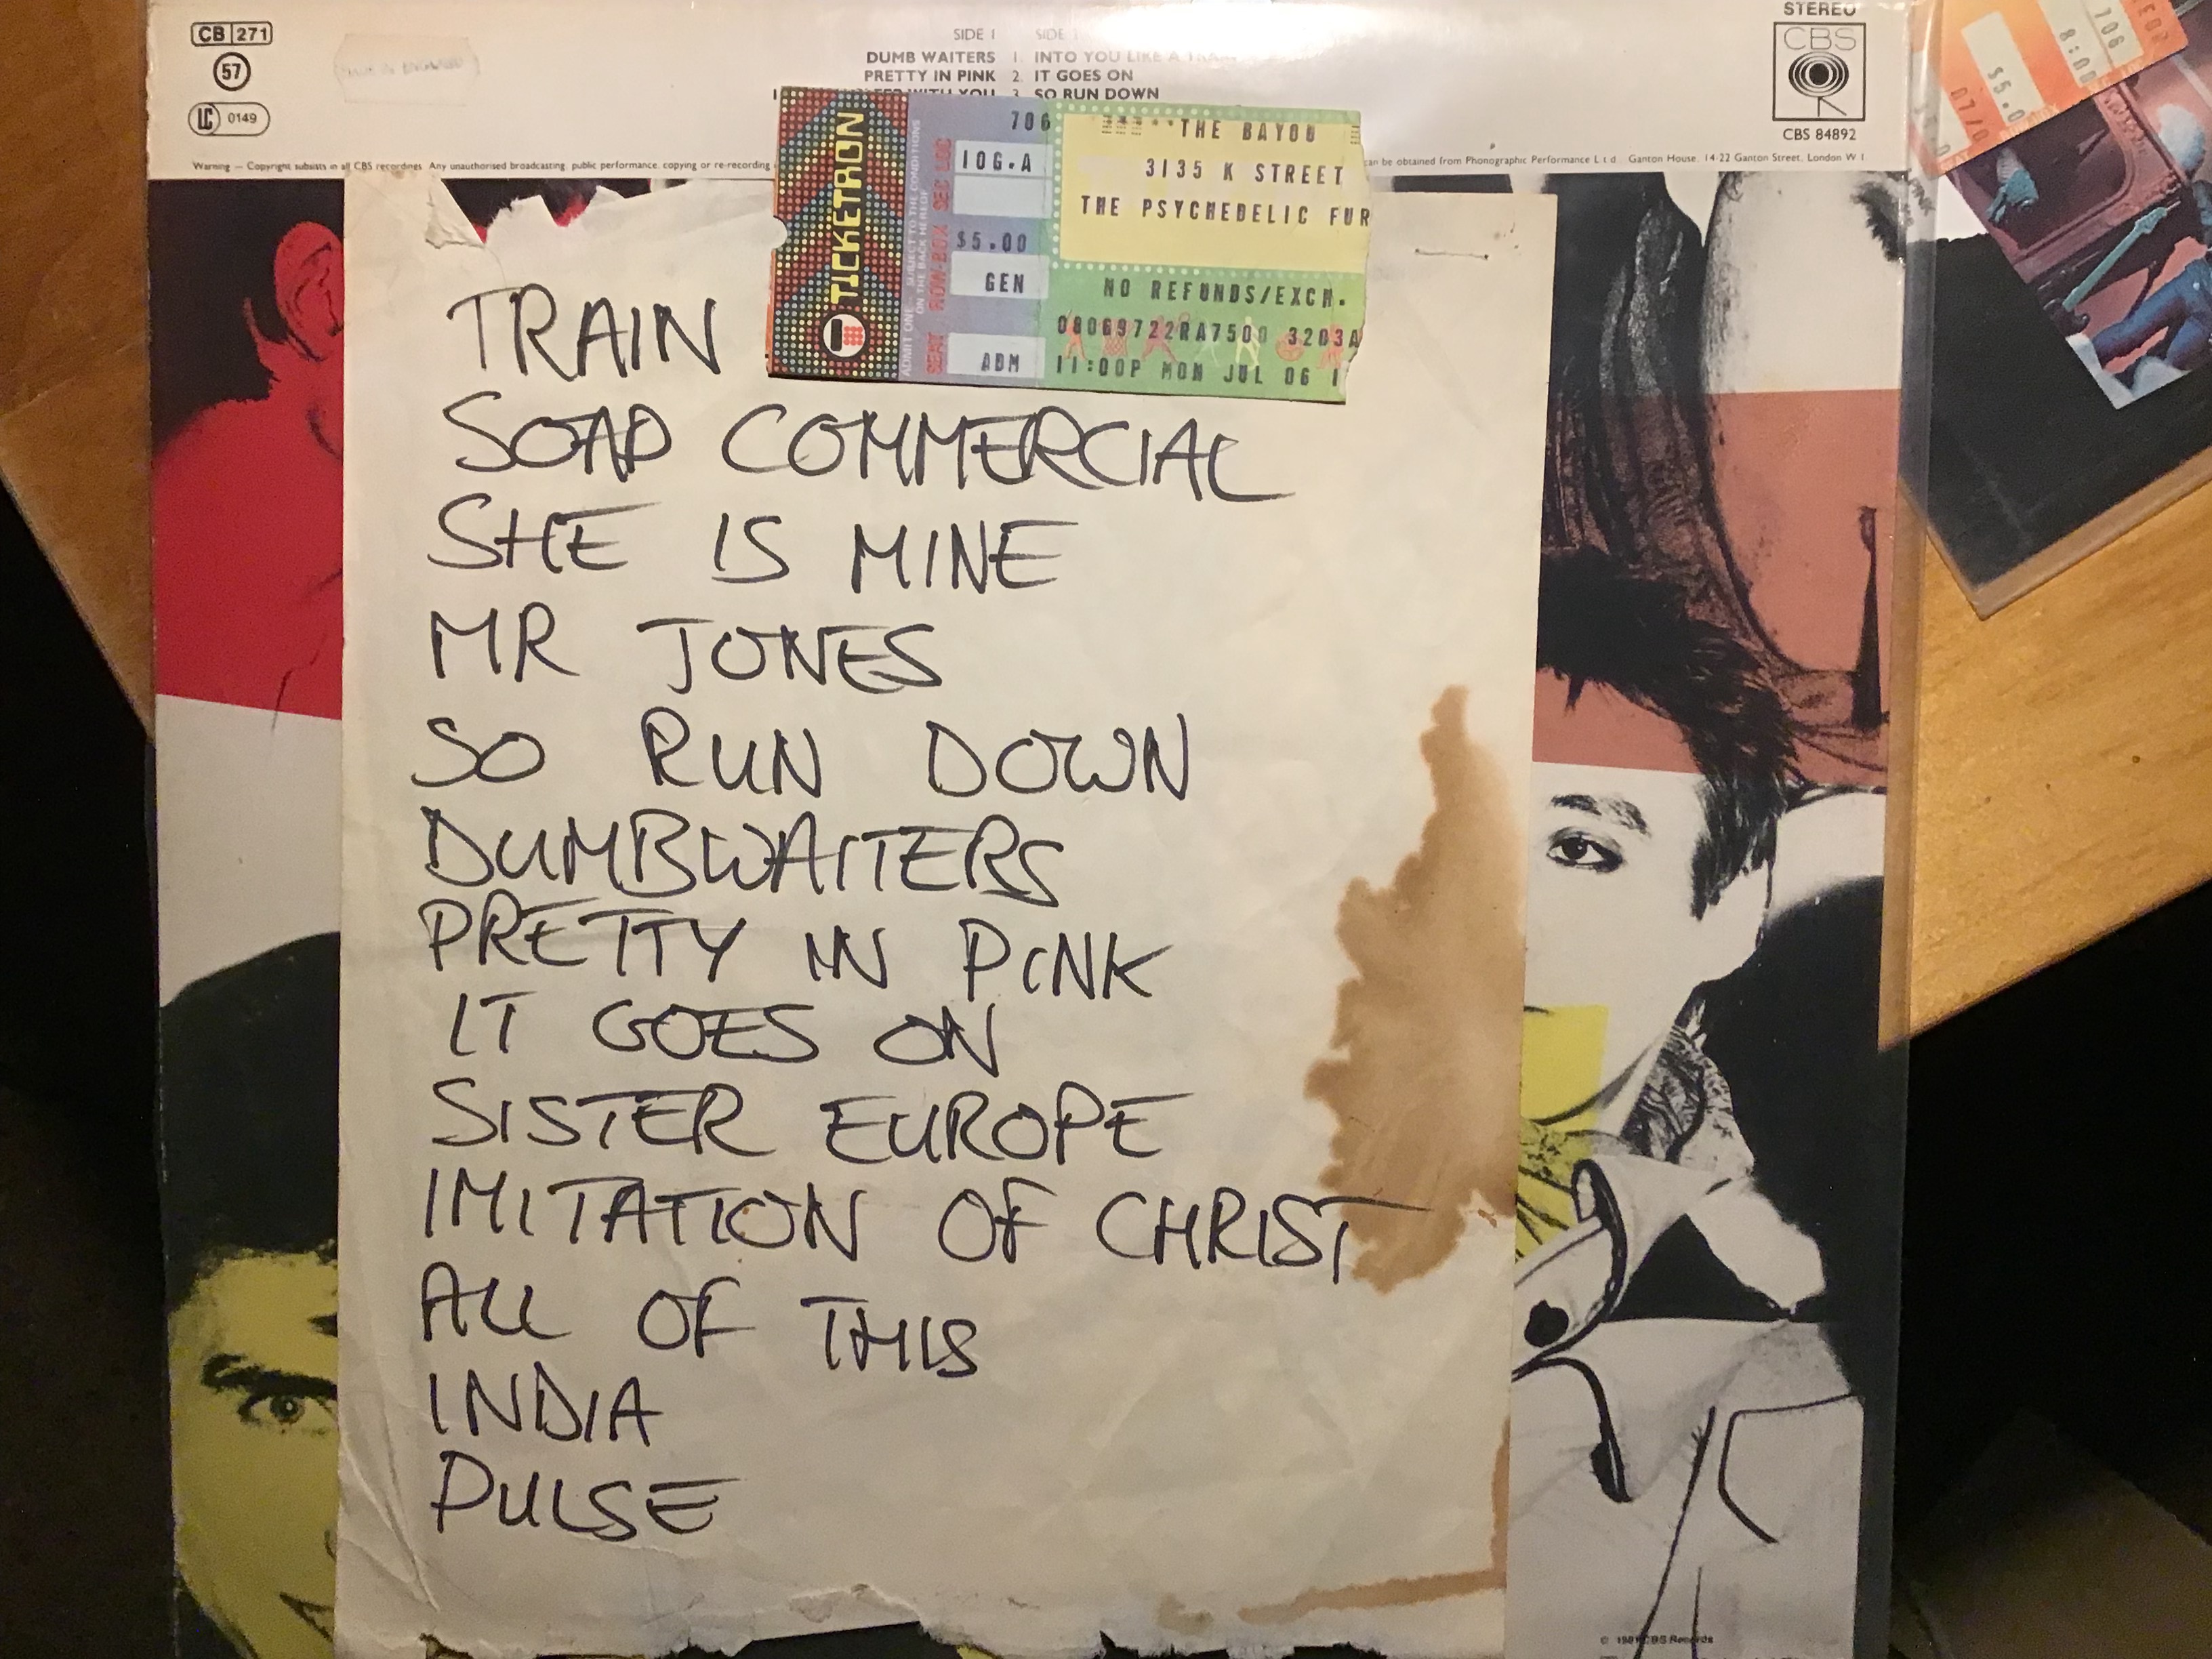 CB 271
57
LC 0149
SIDE 1
DUMB WAITERS 1. INTO YOU LIKE A
PRETTY IN PINK 2. IT GOES ON
WITH YOU 3. SO RUN DOWN
STEREO
CBS
CBS 84892
Warning — Copyright subsists in all CBS recordings. Any unauthorised broadcasting, public performance, copying or re-recording
can be obtained from Phonographic Performance Ltd. Ganton House, 14-22 Ganton Street, London W1
TICKETRON
ADMIT ONE SUBJECT TO THE CONDITIONS
ON THE BACK HEREOF
SEAT ROW-BOX SEC LOC
706
10G.A
$5.00
GEN
ADM
THE BAYOU
3135 K STREET
THE PSYCHEDELIC FUR
NO REFUNDS/EXCH.
08069722RA7500 3203A
11:00P MON JUL 06 1
706
8:00
$5.0
07/0
TRAIN
SOAP COMMERCIAL
SHE IS MINE
MR JONES
SO RUN DOWN
DUMBWAITERS
PRETTY IN PINK
IT GOES ON
SISTER EUROPE
IMITATION OF CHRIST
ALL OF THIS
INDIA
PULSE
© 1981 CBS Records